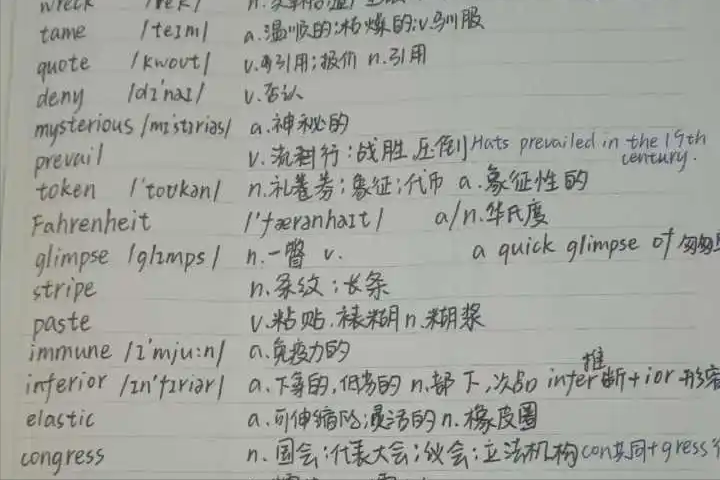 wreck /rek/ n.
tame /teɪm/ a.温顺的;枯燥的;v.驯服
quote /kwoʊt/ v.引用;报价 n.引用
deny /dɪ'naɪ/ v.否认
mysterious /mɪ'stɪriəs/ a.神秘的
prevail v.流行;战胜,压倒 Hats prevailed in the 19th century.
token /'toʊkən/ n.礼券;象征;代币 a.象征性的
Fahrenheit /'færənhaɪt/ a/n.华氏度
glimpse /glɪmps/ n.一瞥 v. a quick glimpse of 匆匆
stripe n.条纹;长条
paste v.粘贴.裱糊 n.糊浆
immune /ɪ'mju:n/ a.免疫力的
inferior /ɪn'fɪriər/ a.下等的,低劣的 n.部下,次品 infer推断+ior形容
elastic a.可伸缩的;灵活的 n.橡皮圈
congress n.国会;代表大会;议会;立法机构 con共同+gress